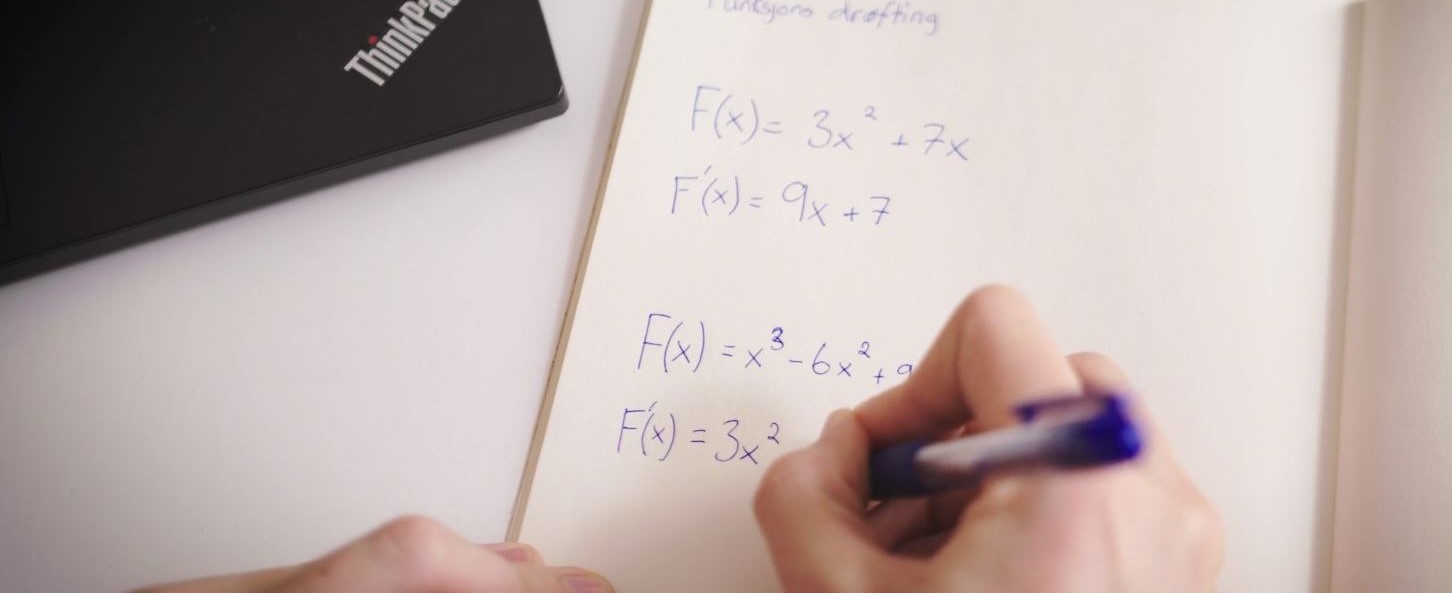 ThinkPad
Funksjons drøfting
F(x)= 3x² + 7x
F'(x)= 9x + 7
F(x) = x³ - 6x² + 9
F'(x) = 3x²